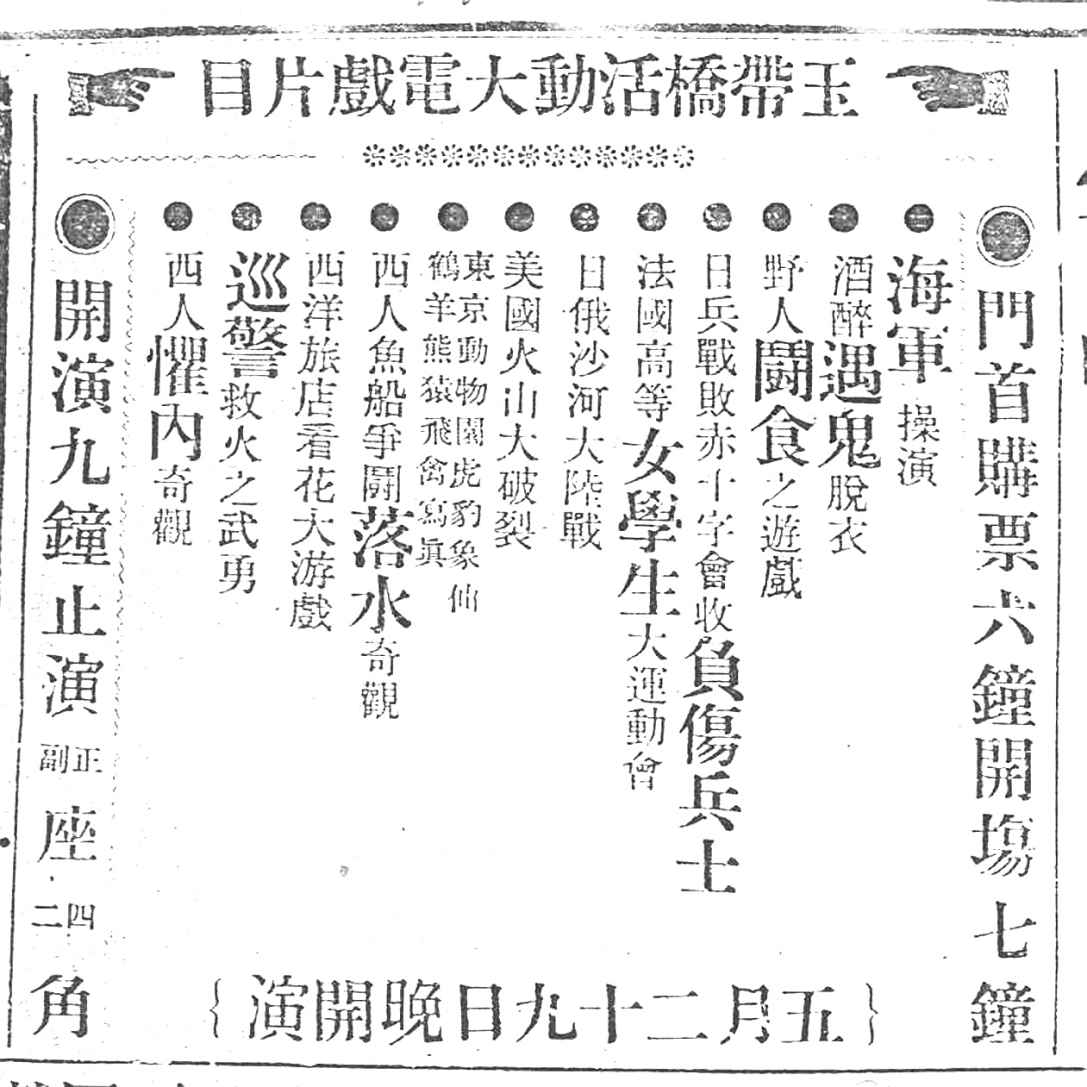 玉帶橋活動大電戲片目
門首購票六鐘開塲七鐘
海軍操演
酒醉遇鬼脫衣
野人鬪食之遊戲
日兵戰敗赤十字會收負傷兵士
法國高等女學生大運動會
日俄沙河大陸戰
美國火山大破裂
東京動物園虎豹象仙
鶴羊熊猿飛禽寫眞
西人魚船爭鬪落水奇觀
西洋旅店看花大游戲
巡警救火之武勇
西人懼內奇觀
開演九鐘止演正副座四二角
五月二十九日晚開演